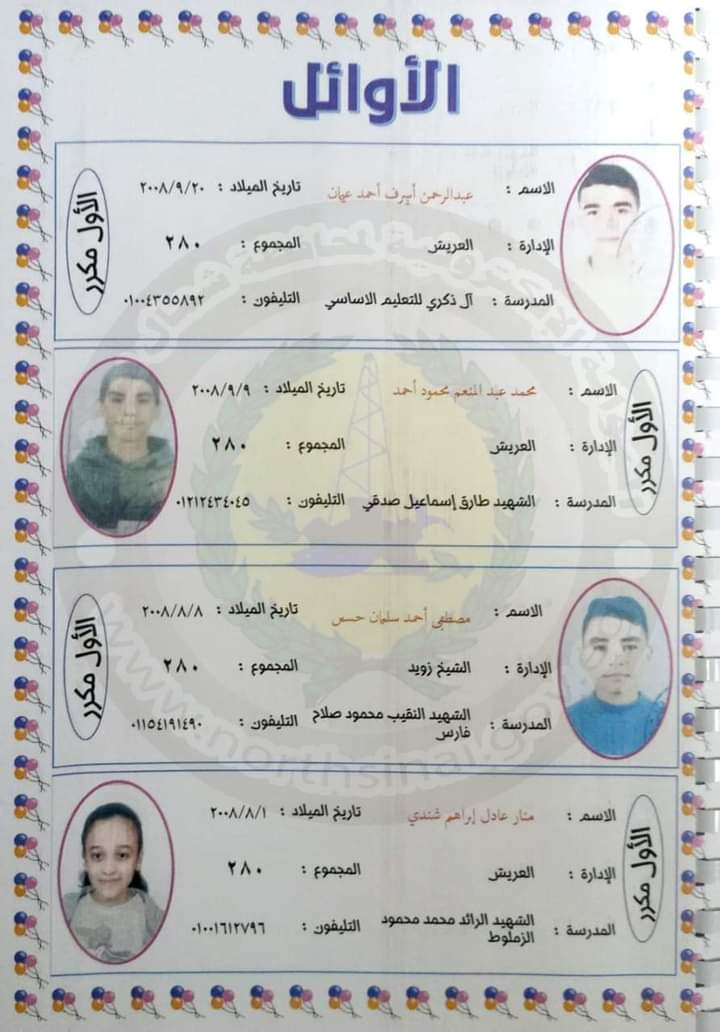 الأوائل
الاسم : عبدالرحمن أشرف أحمد تاريخ الميلاد : ٢٠٠٨/٩/٢٠
الإدارة : العريش المجموع : ٢٨٠
المدرسة : آل ذكري للتعليم الاساسي التليفون : ٠١٠٠٤٣٥٥٨٩٢
الأول مكرر
الاسم : محمد عبد المنعم محمود أحمد تاريخ الميلاد : ٢٠٠٨/٩/٩
الإدارة : العريش المجموع : ٢٨٠
المدرسة : الشهيد طارق إسماعيل صدقي التليفون : ٠١٢١٢٤٣٤٠٤٥
الأول مكرر
الاسم : مصطفى أحمد سلمان تاريخ الميلاد : ٢٠٠٨/٨/٨
الإدارة : الشيخ زويد المجموع : ٢٨٠
المدرسة : الشهيد النقيب محمود صلاح التليفون : ٠١١٥٤١٩١٤٩٠
فارس
الأول مكرر
الاسم : منار عادل إبراهم شندي تاريخ الميلاد : ٢٠٠٨/٨/١
الإدارة : العريش المجموع : ٢٨٠
المدرسة : الشهيد الرائد محمد محمود التليفون : ٠١٠٠١٦١٢٧٩٦
الزملوط
الأول مكرر